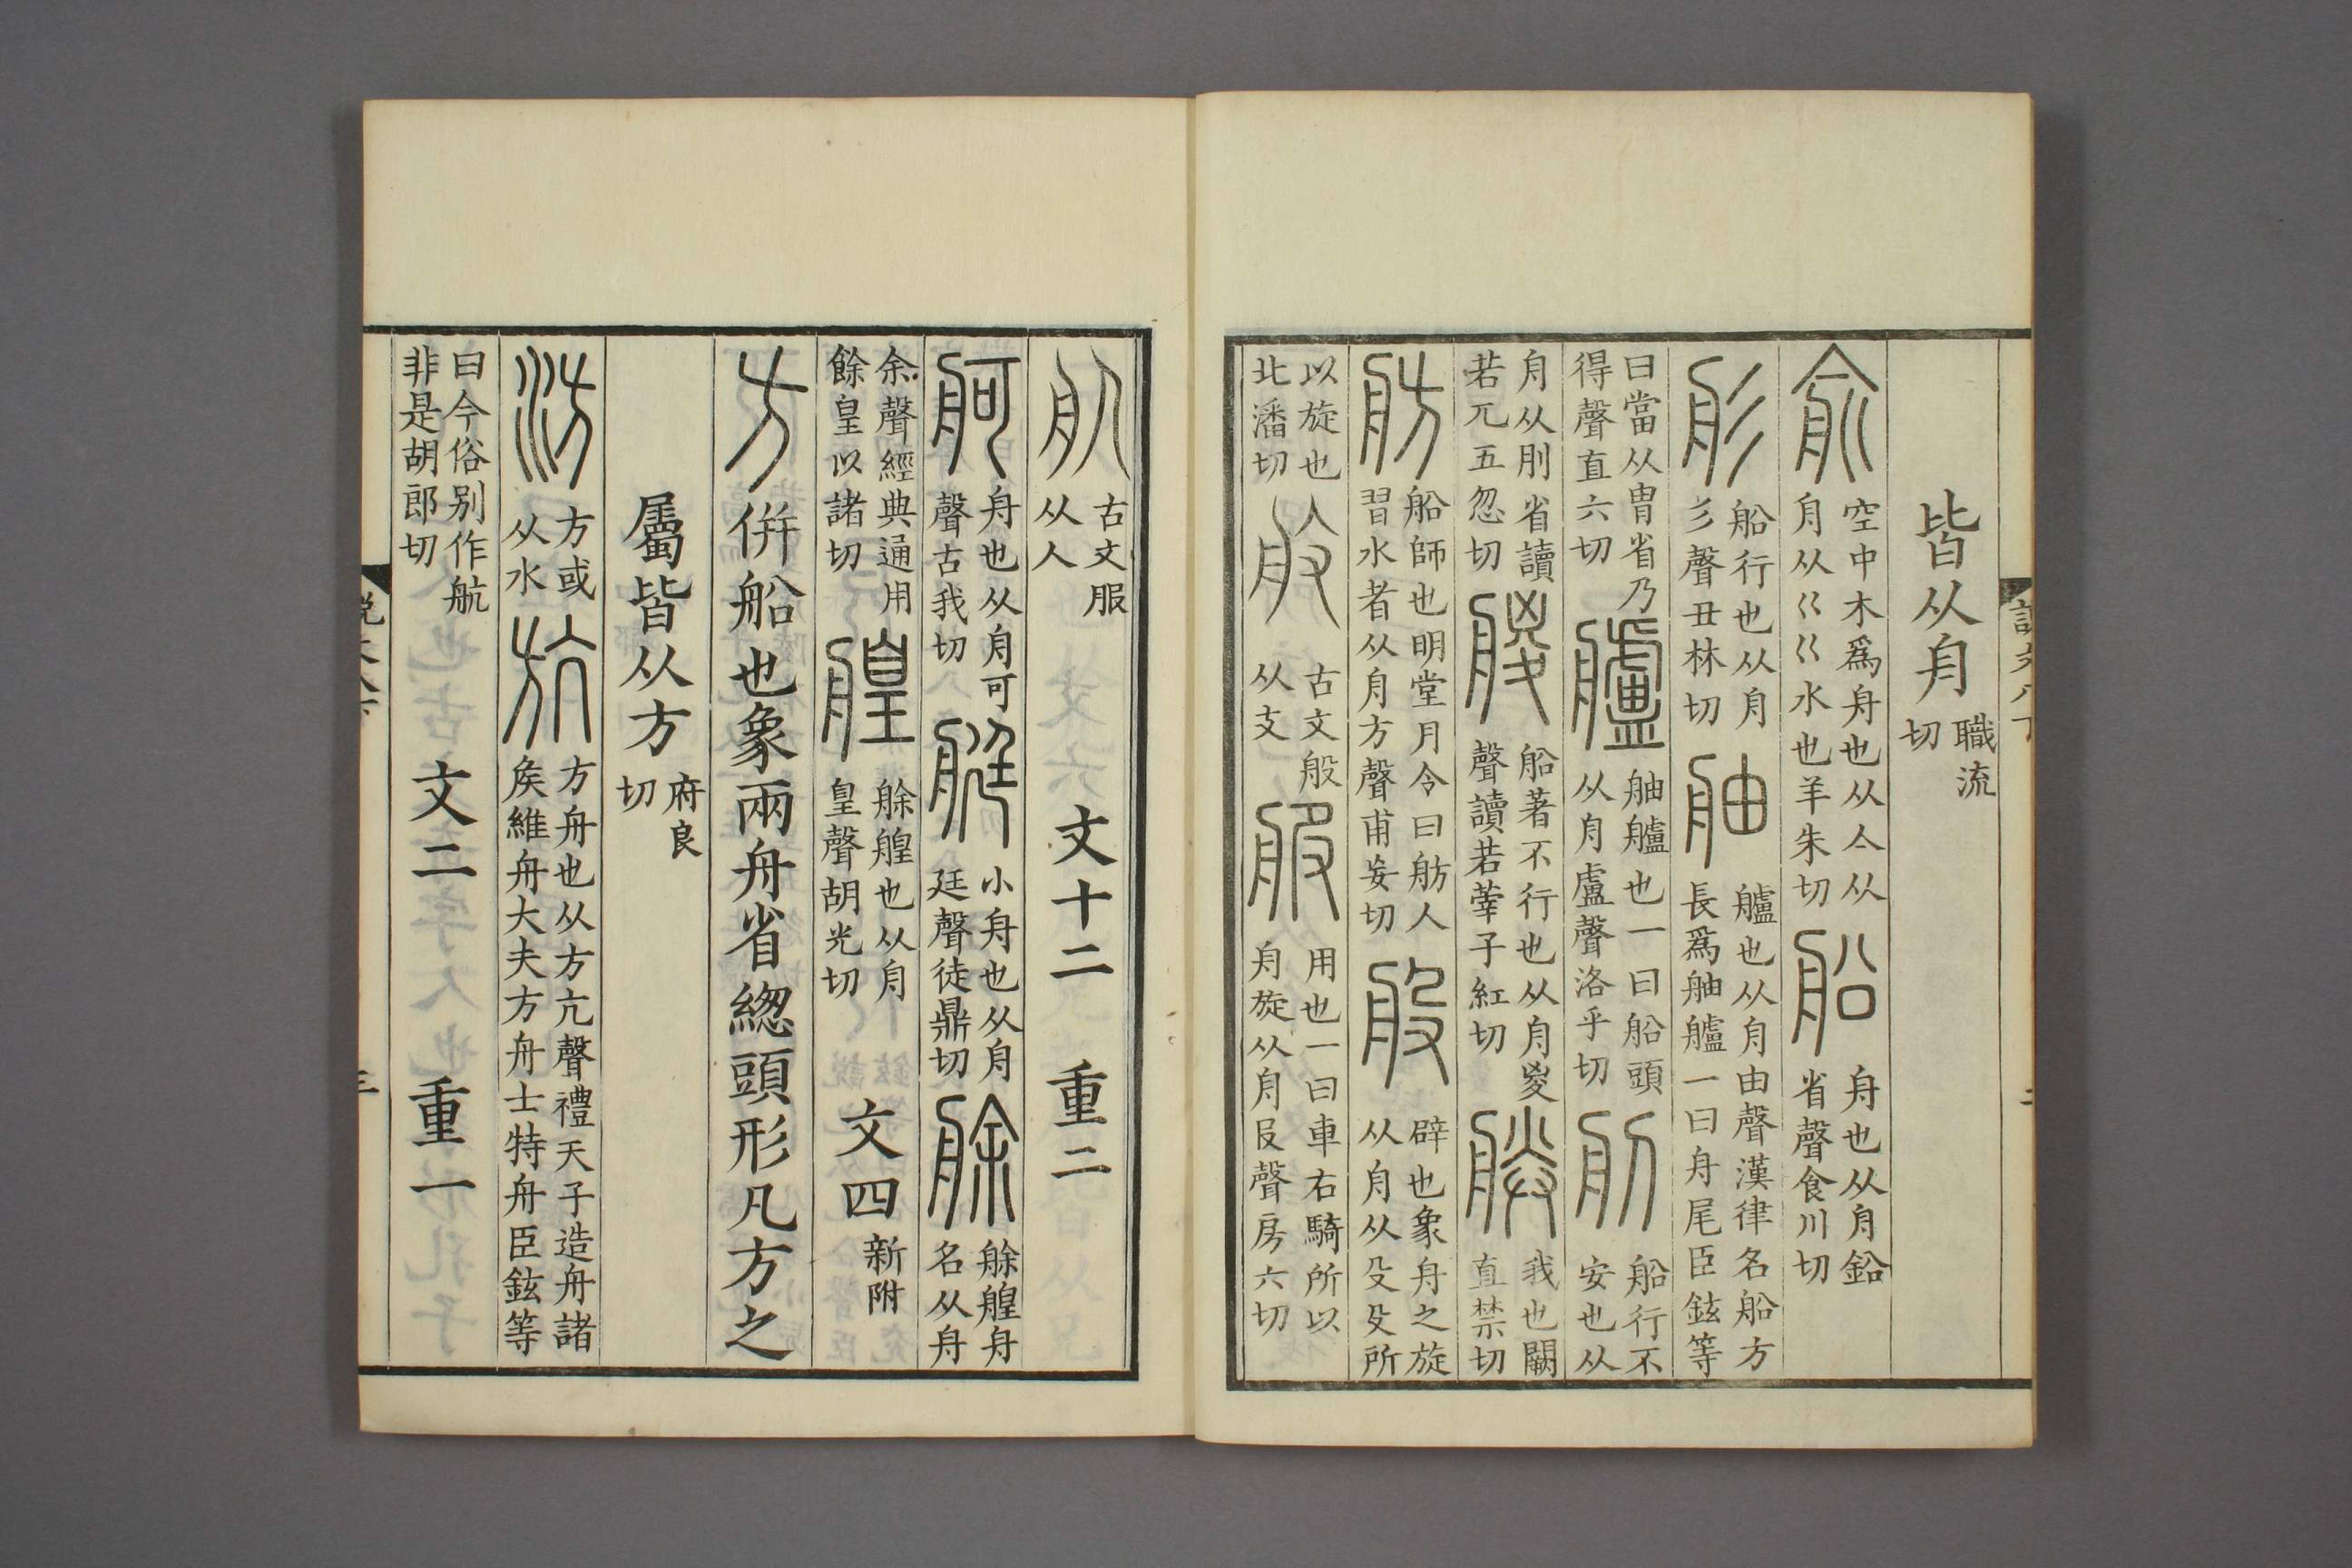 皆从舟職流切
俞空中木爲舟也从亼从舟从巜巜水也羊朱切船舟也从舟鉛省聲食川切
彤船行也从舟彡聲丑林切舳艫也从舟由聲漢律名船方長爲舳艫一曰舟尾臣鉉等
曰當从冑省乃得聲直六切艫舳艫也一曰船頭从舟盧聲洛乎切𦨉船行不安也从
舟从刖省讀若兀五忽切艐船著不行也从舟㚇聲讀若䔖子紅切朕我也闕直禁切
舫船師也明堂月令曰舫人習水者从舟方聲甫妄切般辟也象舟之旋从舟从殳殳所
以旋也北潘切古文般从支服用也一曰車右騎所以舟旋从舟𠬝聲房六切
古文服从人 文十二 重二
舸舟也从舟可聲古我切艇小舟也从舟廷聲徒鼎切艅艅艎舟名从舟
余聲經典通用餘皇以諸切艎艅艎也从舟皇聲胡光切 文四新附
方併船也象兩舟省緫頭形凡方之
屬皆从方府良切
汸方或从水斻方舟也从方亢聲禮天子造舟諸矦維舟大夫方舟士特舟臣鉉等
曰今俗别作航非是胡郎切 文二 重一